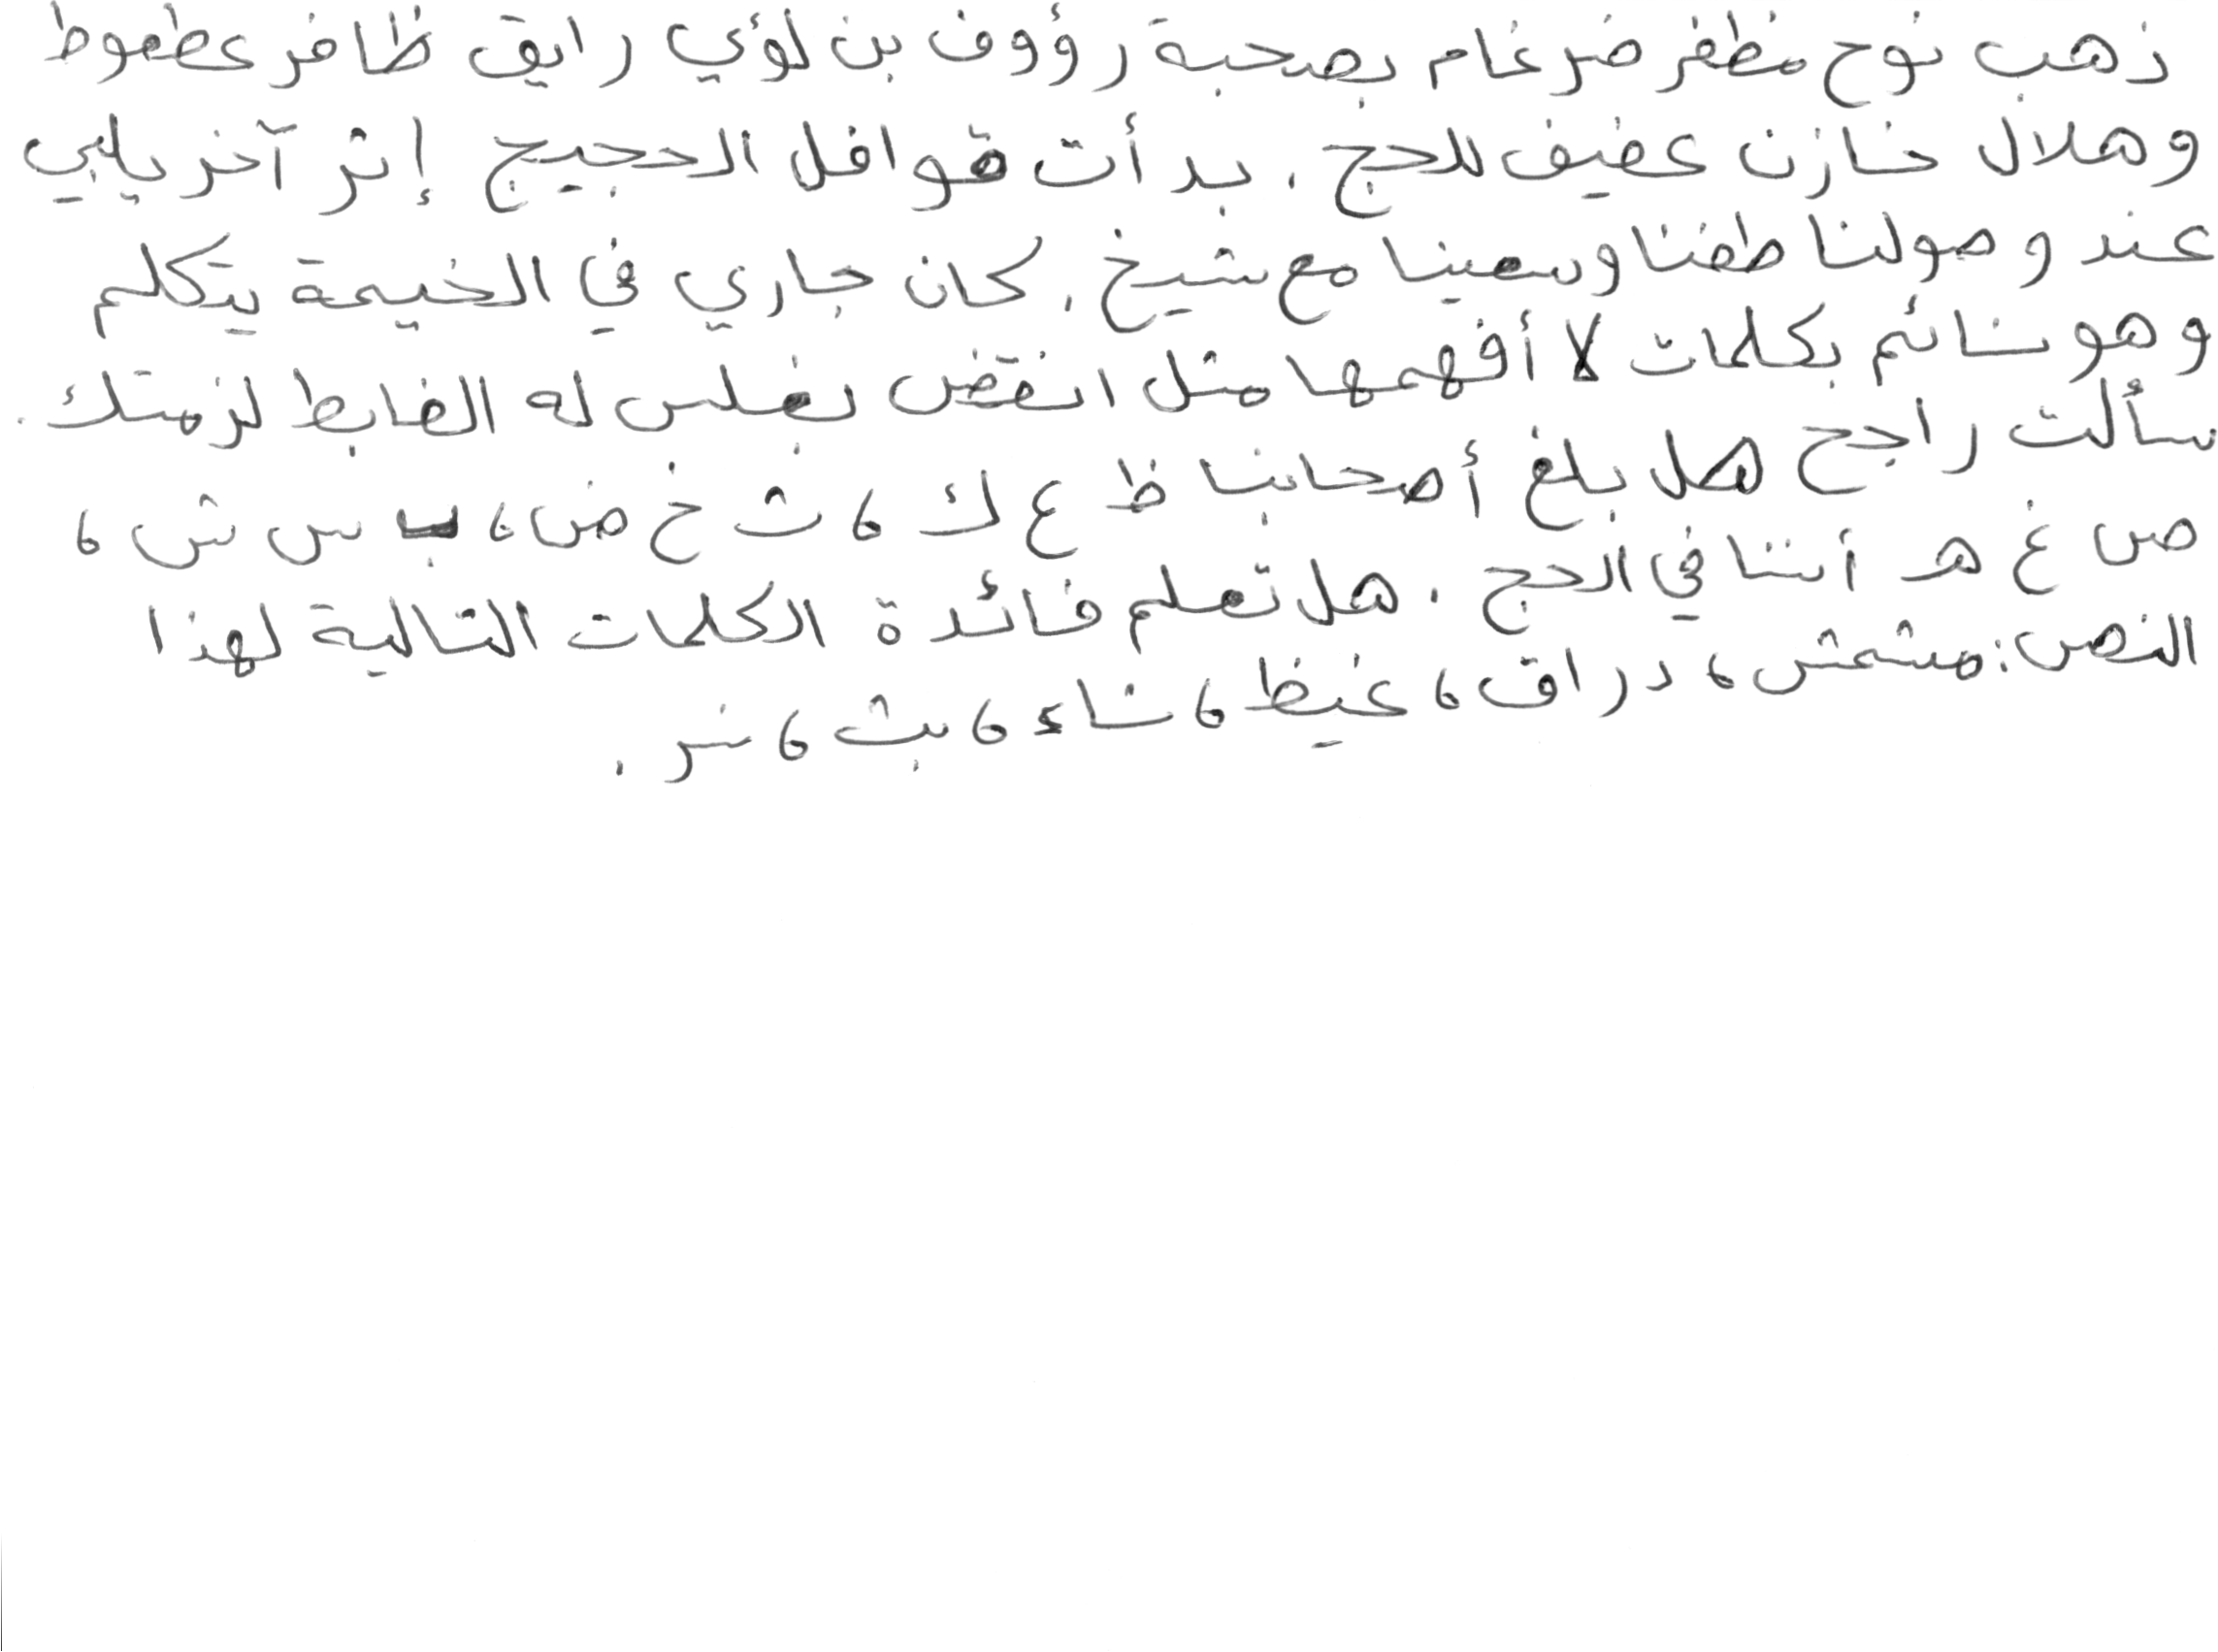 ذهب نوح مظفر ضرغام بصحبة رؤوف بن لؤي رايق ظافر عطعوط
وهلال خازن عفيف للحج . بدأت قوافل الحجيج إثر آخر يلبي
عند وصولنا طفنا وسعينا مع شيخ . كان جاري في الخيمة يتكلم
وهو نائم بكلمات لا أفهمها مثل انقض نغلس له الضابط لزمتك .
سألت راجح هل بلغ أصحابنا ظ ع ك ، ث خ ض ، ب س ش ،
ص غ هـ أننا في الحج . هل تعلم فائدة الكلمات التالية لهذا
النص : مشمش ، دراق ، غيظ ، شاء ، بث ، نر .